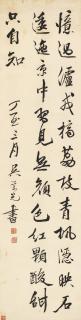 憶過瀘戎摘荔枝青楓隱映石
逶迤京中見無顏色紅顆酸甜
只自知
丁亥三月吳書